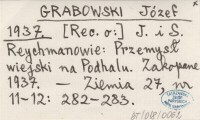 GRABOWSKI Józef
1937. [Rec. o:] J. i S.
Reychmanowie: Przemysł
wiejski na Podhalu. Zakopane
1937. – Ziemia 27, nr
11-12: 282-283.